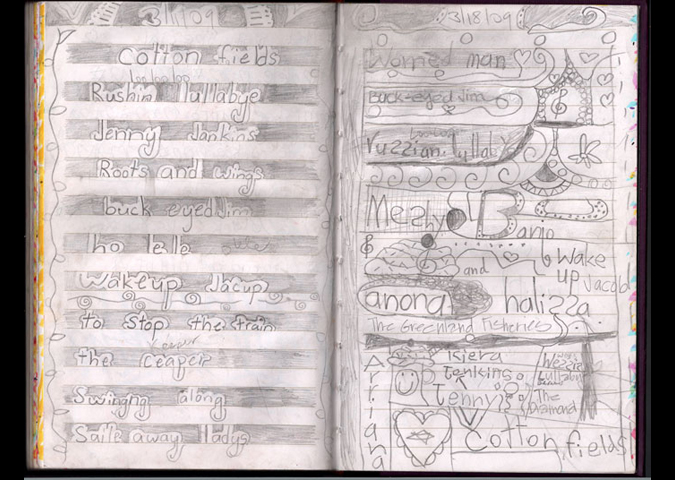 3/1/09
cotton fields
loo loo loo
Rushin lullabye
Jenny Jankins
Roots and wings
buck eyed Jim
ho le le
Wakeup Jacup
to stop the train
the Ceaper
Swingng along
Saile away ladys
3/18/09
Worried man
Buck-eyed Jim
ruzzian lullaby
Melshy
Banjo
and
Wake
up Jacob
anona halizza
The Greenland Fisheries
Ariana
Kiera
Jenkins
Jenny
Lullaby
The
Diamond
Cotton fields